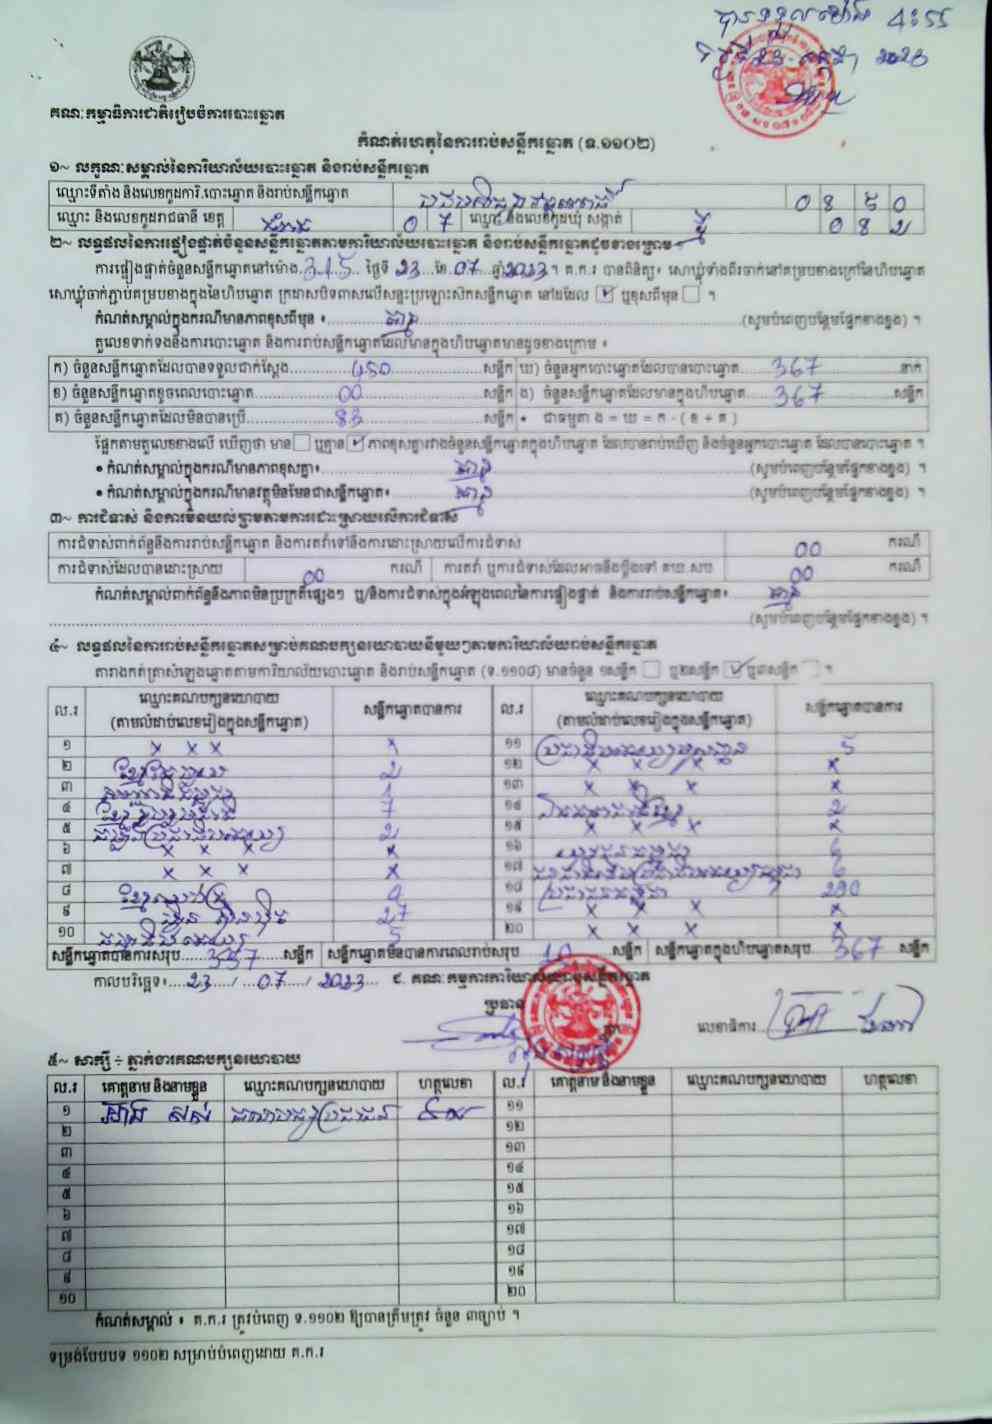 បានទទួលម៉ោង 4:55
ថ្ងៃទី 23 2023
គណៈកម្មាធិការជាតិរៀបចំការបោះឆ្នោត
កំណត់ហេតុនៃការរាប់សន្លឹកឆ្នោត (ទ.១១០២)
១~ លក្ខណៈសម្គាល់នៃការិយាល័យបោះឆ្នោត និងរាប់សន្លឹកឆ្នោត
ឈ្មោះទីតាំង និងលេខកូដការិ.បោះឆ្នោត និងរាប់សន្លឹកឆ្នោត 0 8 5 0
ឈ្មោះ និងលេខកូដរាជធានី ខេត្ត កំពត 0 7 ឈ្មោះ និងលេខកូដឃុំ សង្កាត់ 0 8 2
២~ លទ្ធផលនៃការផ្ទៀងផ្ទាត់ចំនួនសន្លឹកឆ្នោតតាមការិយាល័យបោះឆ្នោត និងរាប់សន្លឹកឆ្នោតដូចខាងក្រោម ៖
ការផ្ទៀងផ្ទាត់ចំនួនសន្លឹកឆ្នោតនៅម៉ោង 3:15 ថ្ងៃទី 23 ខែ 07 ឆ្នាំ 2023 ។ គ.ក.រ បានពិនិត្យ៖ សោឃ្លុំទាំងពីរចាក់នៅគម្របខាងក្រៅនៃហិបឆ្នោត
សោឃ្លុំចាក់ភ្ជាប់គម្របខាងក្នុងនៃហិបឆ្នោត ក្រដាសបិទពាសលើសន្ទះប្រឡោះស៊កសន្លឹកឆ្នោត នៅដដែល ☑ ឬខុសពីមុន ☐ ។
កំណត់សម្គាល់ក្នុងករណីមានភាពខុសពីមុន ៖ គ្មាន (សូមបំពេញបន្ថែមផ្នែកខាងខ្នង) ។
តួលេខទាក់ទងនឹងការបោះឆ្នោត និងការរាប់សន្លឹកឆ្នោតដែលមានក្នុងហិបឆ្នោតមានដូចខាងក្រោម ៖
ក) ចំនួនសន្លឹកឆ្នោតដែលបានទទួលជាក់ស្តែង 450 សន្លឹក ឃ) ចំនួនអ្នកបោះឆ្នោតដែលបានបោះឆ្នោត 367 នាក់
ខ) ចំនួនសន្លឹកឆ្នោតខូចពេលបោះឆ្នោត 00 សន្លឹក ង) ចំនួនសន្លឹកឆ្នោតដែលមានក្នុងហិបឆ្នោត 367 សន្លឹក
គ) ចំនួនសន្លឹកឆ្នោតដែលមិនបានប្រើ 83 សន្លឹក • ជាធម្មតា ង = ឃ = ក - ( ខ + គ )
ផ្អែកតាមតួលេខខាងលើ ឃើញថា មាន ☐ ឬគ្មាន ☑ ភាពខុសគ្នារវាងចំនួនសន្លឹកឆ្នោតក្នុងហិបឆ្នោត ដែលបានរាប់ឃើញ និងចំនួនអ្នកបោះឆ្នោត ដែលបានបោះឆ្នោត ។
• កំណត់សម្គាល់ក្នុងករណីមានភាពខុសគ្នា៖ គ្មាន (សូមបំពេញបន្ថែមផ្នែកខាងខ្នង) ។
• កំណត់សម្គាល់ក្នុងករណីមានវត្ថុមិនមែនជាសន្លឹកឆ្នោត៖ គ្មាន (សូមបំពេញបន្ថែមផ្នែកខាងខ្នង) ។
៣~ ការជំទាស់ និងការមិនយល់ព្រមតាមការដោះស្រាយលើការជំទាស់
ការជំទាស់ពាក់ព័ន្ធនឹងការរាប់សន្លឹកឆ្នោត និងការតវ៉ាទៅនឹងការដោះស្រាយលើការជំទាស់ 00 ករណី
ការជំទាស់ដែលបានដោះស្រាយ 00 ករណី ការតវ៉ា ឬការជំទាស់ដែលអាចនឹងប្តឹងទៅ គឃ.សប 00 ករណី
កំណត់សម្គាល់ពាក់ព័ន្ធនឹងភាពមិនប្រក្រតីផ្សេងៗ ឬ/និងការជំទាស់ក្នុងអំឡុងពេលនៃការផ្ទៀងផ្ទាត់ និងការរាប់សន្លឹកឆ្នោត៖ គ្មាន
(សូមបំពេញបន្ថែមផ្នែកខាងខ្នង) ។
៤~ លទ្ធផលនៃការរាប់សន្លឹកឆ្នោតសម្រាប់គណបក្សនយោបាយនីមួយៗតាមការិយាល័យរាប់សន្លឹកឆ្នោត
តារាងកត់ត្រាសំឡេងឆ្នោតតាមការិយាល័យបោះឆ្នោត និងរាប់សន្លឹកឆ្នោត (ទ.១១០៨) មានចំនួន ១សន្លឹក ☐ ឬ២សន្លឹក ☑ ឬ៣សន្លឹក ☐ ។
ល.រ ឈ្មោះគណបក្សនយោបាយ (តាមលំដាប់លេខរៀងក្នុងសន្លឹកឆ្នោត) សន្លឹកឆ្នោតបានការ ល.រ ឈ្មោះគណបក្សនយោបាយ (តាមលំដាប់លេខរៀងក្នុងសន្លឹកឆ្នោត) សន្លឹកឆ្នោតបានការ
១ x x x x ១១ 5
២ 2 ១២ x x x x
៣ 1 ១៣ x x x x
៤ 7 ១៤ 2
៥ 2 ១៥ x x x x
៦ x x x x ១៦ 6
៧ x x x x ១៧ 6
៨ 0 ១៨ ប្រជាជនកម្ពុជា 290
៩ 27 ១៩ x x x x
១០ 5 ២០ x x x x
សន្លឹកឆ្នោតបានការសរុប 357 សន្លឹក សន្លឹកឆ្នោតមិនបានការពេលរាប់សរុប 10 សន្លឹក សន្លឹកឆ្នោតក្នុងហិបឆ្នោតសរុប 367 សន្លឹក
កាលបរិច្ឆេទ៖ 23 / 07 / 2023 ជ. គណៈកម្មការការិយាល័យរាប់សន្លឹកឆ្នោត
ប្រធាន
លេខាធិការ
៥~ សាក្សី ÷ ភ្នាក់ងារគណបក្សនយោបាយ
ល.រ គោត្តនាម និងនាមខ្លួន ឈ្មោះគណបក្សនយោបាយ ហត្ថលេខា ល.រ គោត្តនាម និងនាមខ្លួន ឈ្មោះគណបក្សនយោបាយ ហត្ថលេខា
១ ១១
២ ១២
៣ ១៣
៤ ១៤
៥ ១៥
៦ ១៦
៧ ១៧
៨ ១៨
៩ ១៩
១០ ២០
កំណត់សម្គាល់ ៖ គ.ក.រ ត្រូវបំពេញ ទ.១១០២ ឱ្យបានត្រឹមត្រូវ ចំនួន ៣ច្បាប់ ។
ទម្រង់បែបបទ ១១០២ សម្រាប់បំពេញដោយ គ.ក.រ